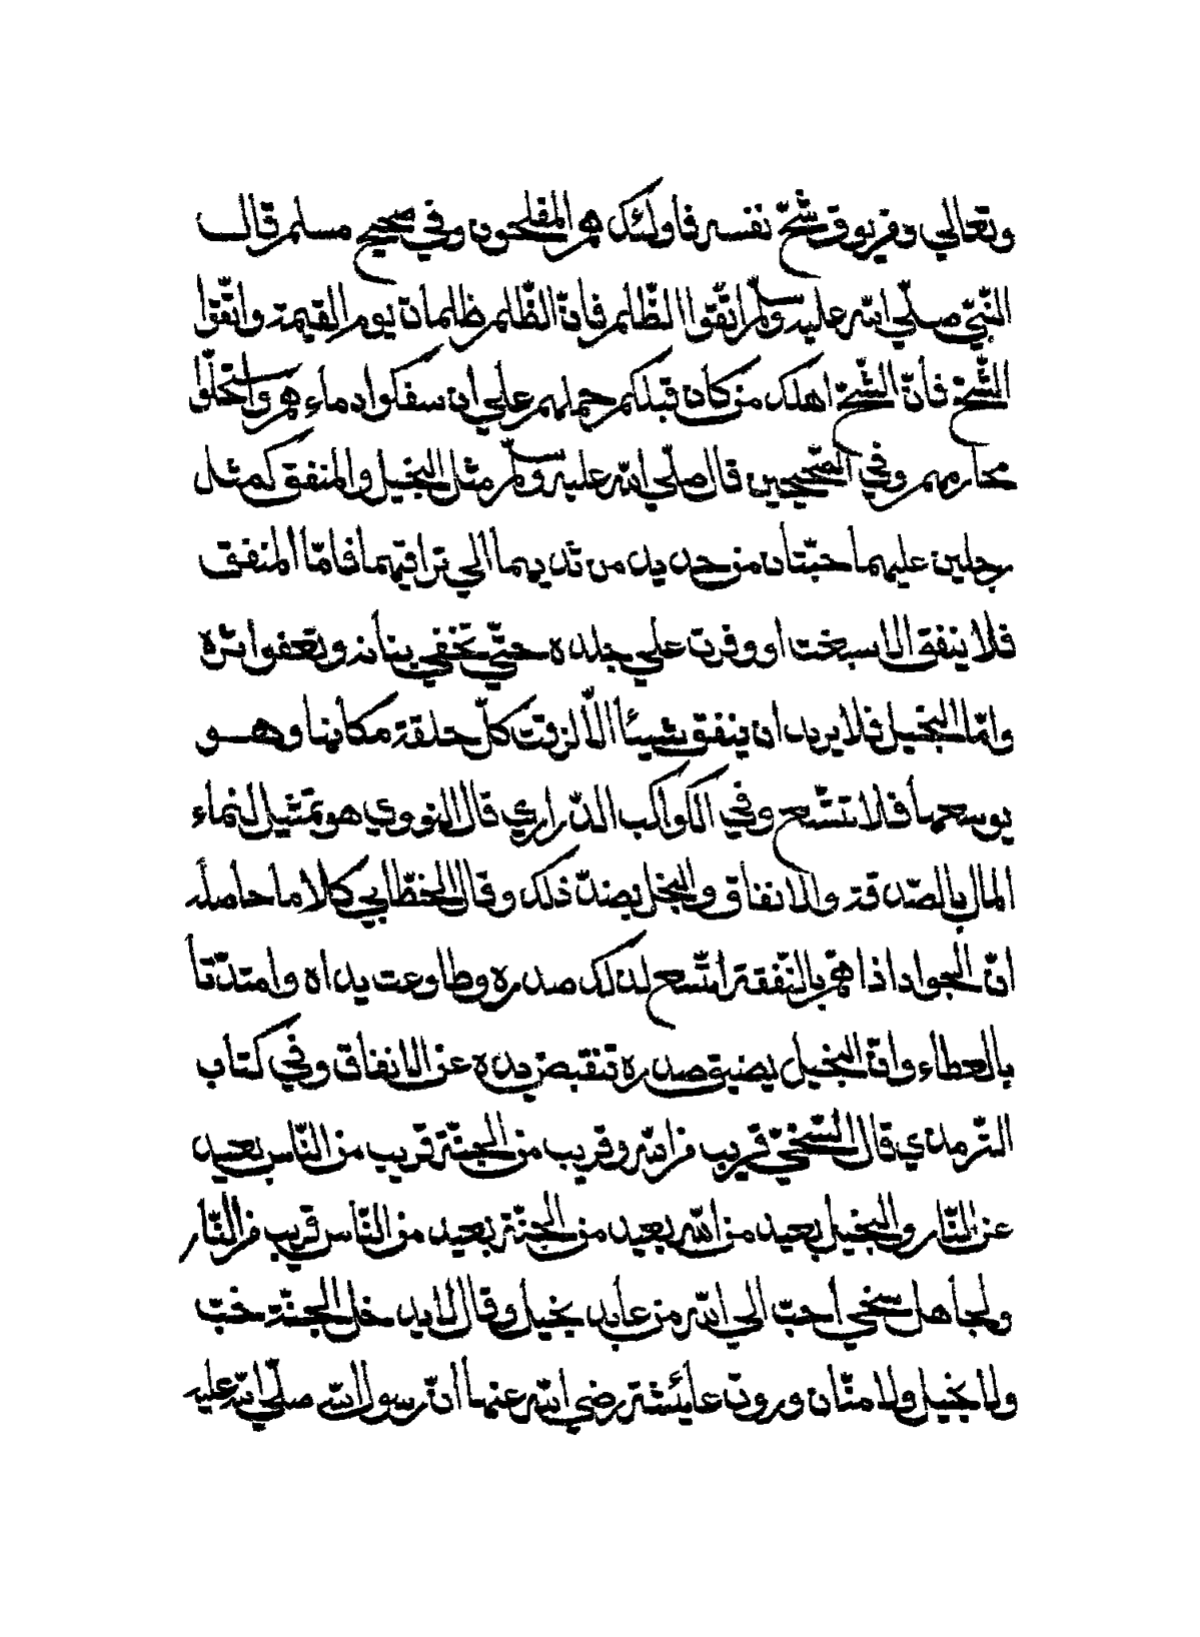 وتعالي ومن يوق شحّ نفسه فاولئك هم المفلحون وفي صحيح مسلم قال
النّبيّ صلّي الله عليه وسلّم اتّقوا الظّلم فانّ الظّلم ظلمات يوم القيمة واتّقوا
الشّحّ فانّ الشّحّ اهلك من كان قبلكم حملهم علي ان سفكوا دماءهم واستحلّوا
محارمهم وفي الصّحيحين قال صلّي الله عليه وسلّم مثل البخيل والمنفق كمثل
رجلين عليهما جبّتان من حديد من ثديهما الي تراقيهما فامّا المنفق
فلا ينفق الا سبغت او وفرت علي جلده حتّي تخفي بنانه وتعفوا ثره
وامّا البخيل فلا يريد ان ينفق شيئا الاّ لزقت كلّ حلقة مكانها وهو
يوسعها فلا تتّسع وفي الكواكب الدّراري قال النووي هو تمثيل لنماء
المال بالصّدقة والانفاق والبخل بضدّ ذلك وقال الخطّابي كلاما حاصله
انّ الجواد اذا همّ بالنّفقة اتّسع لذلك صدره وطاوعت يداه وامتدّتا
بالعطاء وانّ البخيل يضيق صدره تنقبض يده عن الانفاق وفي كتاب
الترمدي قال السّخيّ قريب من الله وقريب من الجنّة قريب من النّاس بعيد
عن النّار والبخيل بعيد من الله بعيد من الجنّة بعيد من النّاس قريب من النّار
ولجاهل سخي احبّ الي الله من عابد بخيل وقال لا يدخل الجنّة خبّ
ولا بخيل ولا منّان وروت عايئشة رضي الله عنها انّ رسول الله صلّي الله عليه